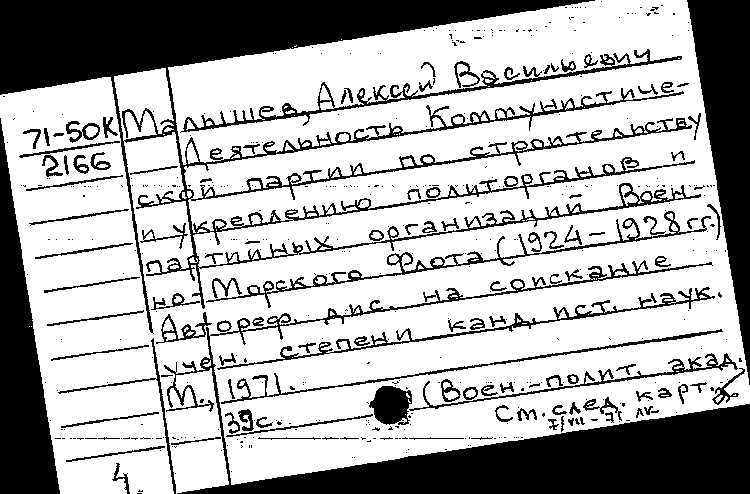 71-50К
2166
Малышев, Алексей Васильевич
Деятельность Коммунистиче-
ской партии по строительству
и укреплению политорганов и
партийных организаций Воен-
но-Морского Флота (1924-1928 гг.)
Автореф. дис. на соискание
учен. степени канд. ист. наук.
М., 1971.
39с. (Воен.-полит. акад.
См. след. карт.
4.